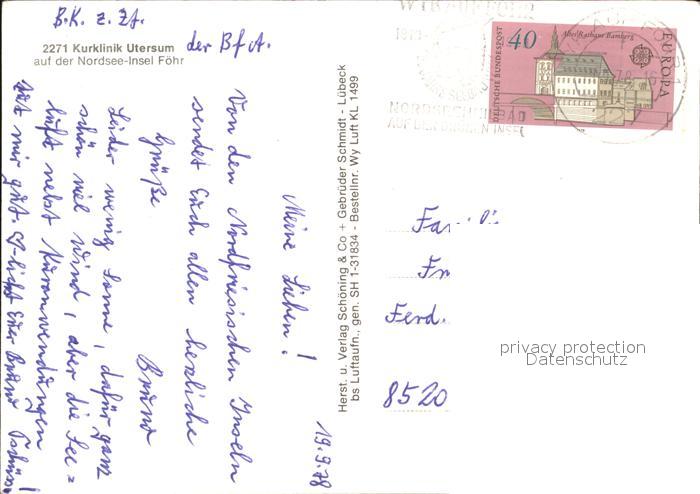 B.K. z. Zt.
2271 Kurklinik Utersum der BfA.
auf der Nordsee-Insel Föhr
19.9.78
Meine Lieben!
Von den Nordfriesischen Inseln
sendet Euch allen herzliche
Grüße Bruno
Leider wenig Sonne, dafür ganz
schön viel Wind, aber die See=
luft nebst Kuranwendungen
tut mir gut. Euer Bruno Tschüss!
Herst. u. Verlag Schöning & Co + Gebrüder Schmidt - Lübeck
bs Luftaufn., gen. SH 1-31834 - Bestellnr. Wy Luft KL 1499
WYK AUF FÖHR
NORDSEEHEILBAD
AUF DER GRÜNEN INSEL
40
Altes Rathaus Bamberg
DEUTSCHE BUNDESPOST
EUROPA
Fa
Ferd.
8520
privacy protection
Datenschutz